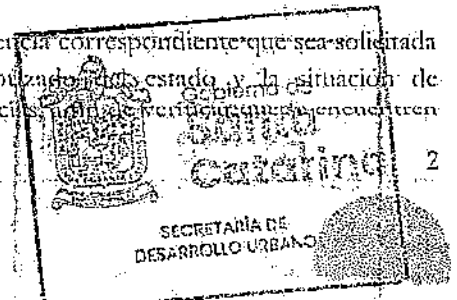 encia correspondiente que sea solicitada
estado y la situación de
verificar que se encuentren
GOBIERNO DE
Santa
Catarina
2
SECRETARÍA DE
DESARROLLO URBANO